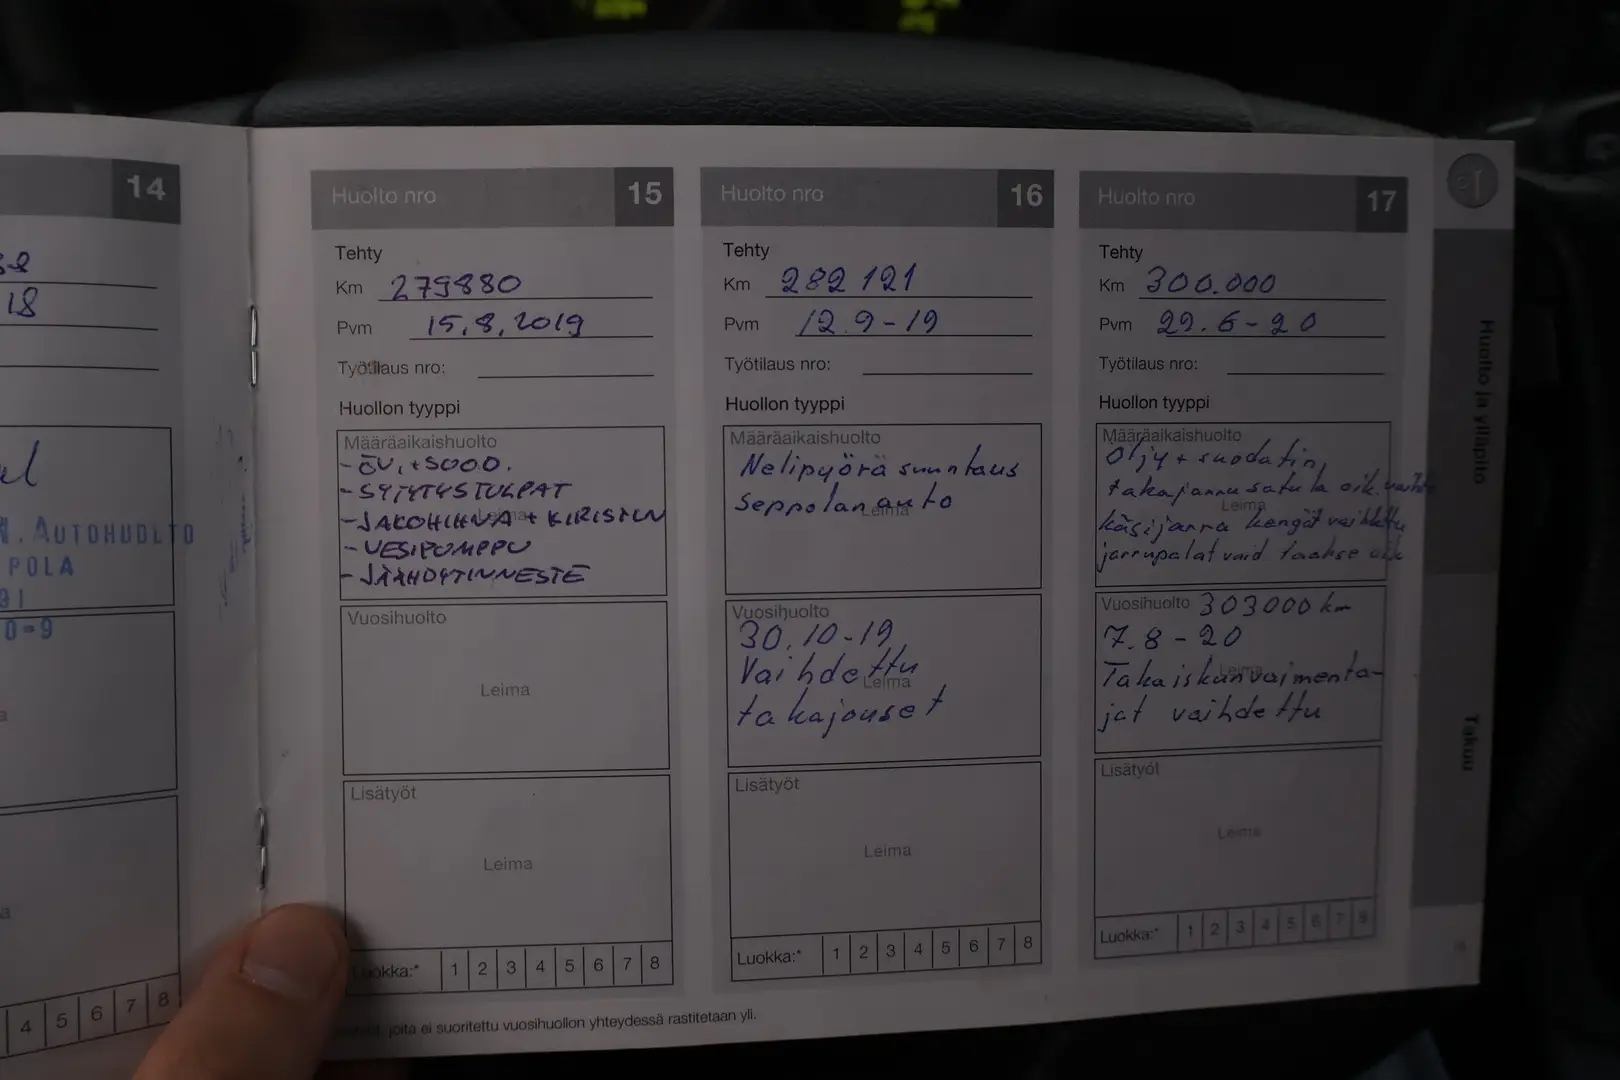 14
18
N. AUTOHUOLTO
POLA
31
0-9
4 5 6 7 8
Huolto nro 15
Tehty
Km 279880
Pvm 15.8.2019
Työtilaus nro:
Huollon tyyppi
Määräaikaishuolto
- ÖV, + SUOD.
- SYTYTYSTULPAT
- JAKOHIHNA + KIRISTIN
Leima
- VESIPUMPPU
- JÄÄHDYTINNESTE
Vuosihuolto
Leima
Lisätyöt
Leima
Luokka:* 1 2 3 4 5 6 7 8
Huolto nro 16
Tehty
Km 282 121
Pvm 12.9-19
Työtilaus nro:
Huollon tyyppi
Määräaikaishuolto
Nelipyörä suuntaus
Seppolan auto
Leima
Vuosihuolto
30.10-19
Vaihdettu
Leima
takajouset
Lisätyöt
Leima
Luokka:* 1 2 3 4 5 6 7 8
Huolto nro 17
Tehty
Km 300.000
Pvm 29.6-20
Työtilaus nro:
Huollon tyyppi
Määräaikaishuolto
Öljy + suodatin,
takajarrusatula oik.
Leima
käsijarru kengät vaihdettu
jarrupalat vaid taakse oik
Vuosihuolto 303000 km
7.8-20
Leima
Takaiskunvaimenta-
jat vaihdettu
Lisätyöt
Leima
Luokka:* 1 2 3 4 5 6 7 8
joita ei suoritettu vuosihuollon yhteydessä rastitetaan yli.
Huolto ja ylläpito
Takuu